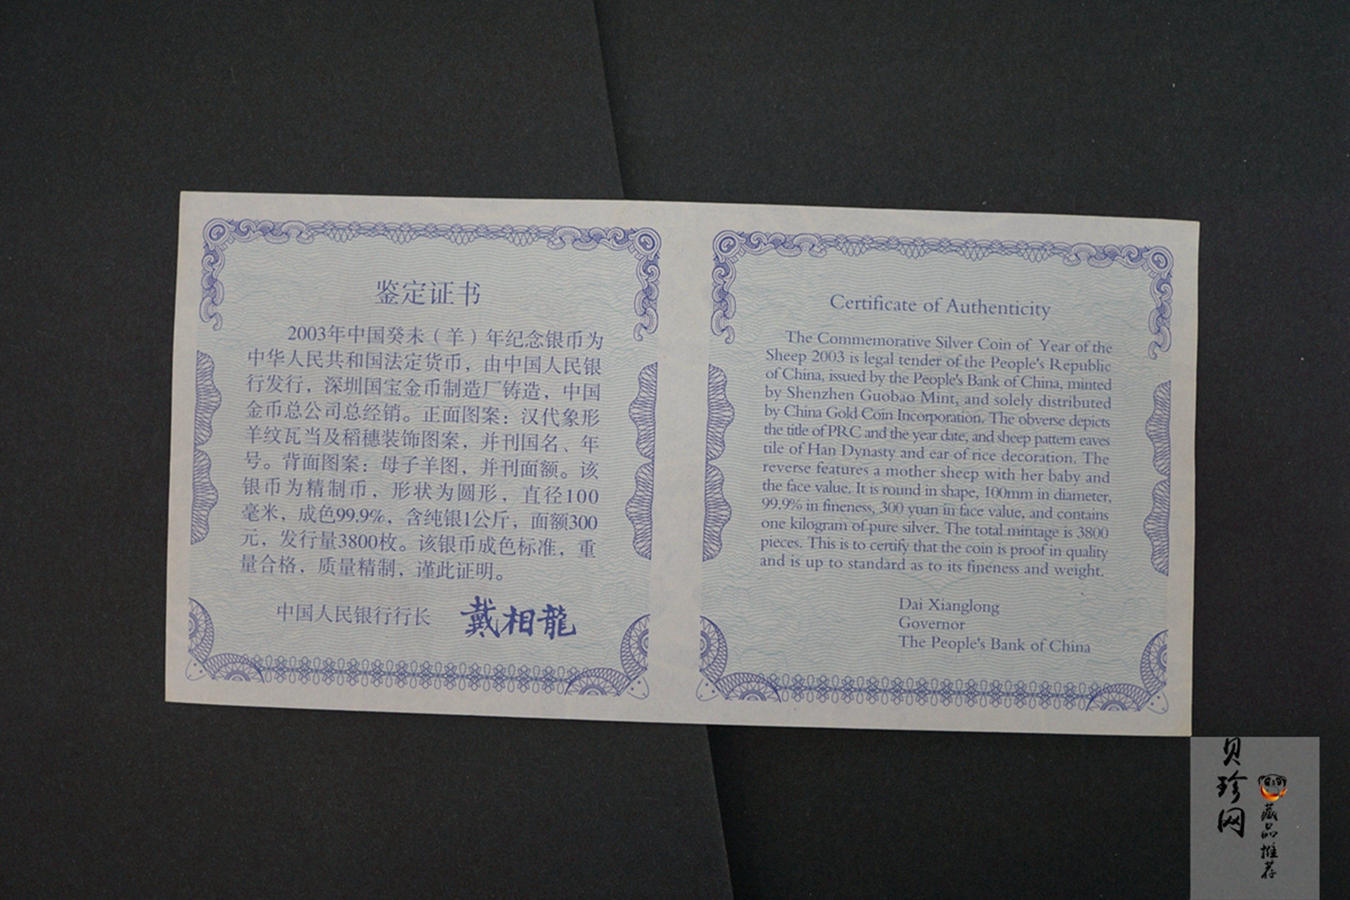 鉴定证书
2003年中国癸未（羊）年纪念银币为
中华人民共和国法定货币，由中国人民银
行发行，深圳国宝金币制造厂铸造，中国
金币总公司总经销。正面图案：汉代象形
羊纹瓦当及稻穗装饰图案，并刊国名、年
号。背面图案：母子羊图，并刊面额。该
银币为精制币，形状为圆形，直径100
毫米，成色99.9%，含纯银1公斤，面额300
元，发行量3800枚。该银币成色标准，重
量合格，质量精制，谨此证明。
中国人民银行行长 戴相龍
Certificate of Authenticity
The Commemorative Silver Coin of Year of the
Sheep 2003 is legal tender of the People's Republic
of China, issued by the People's Bank of China, minted
by Shenzhen Guobao Mint, and solely distributed
by China Gold Coin Incorporation. The obverse depicts
the title of PRC and the year date, and sheep pattern eaves
tile of Han Dynasty and ear of rice decoration. The
reverse features a mother sheep with her baby and
the face value. It is round in shape, 100mm in diameter,
99.9% in fineness, 300 yuan in face value, and contains
one kilogram of pure silver. The total mintage is 3800
pieces. This is to certify that the coin is proof in quality
and is up to standard as to its fineness and weight.
Dai Xianglong
Governor
The People's Bank of China
贝珍网
藏品推荐